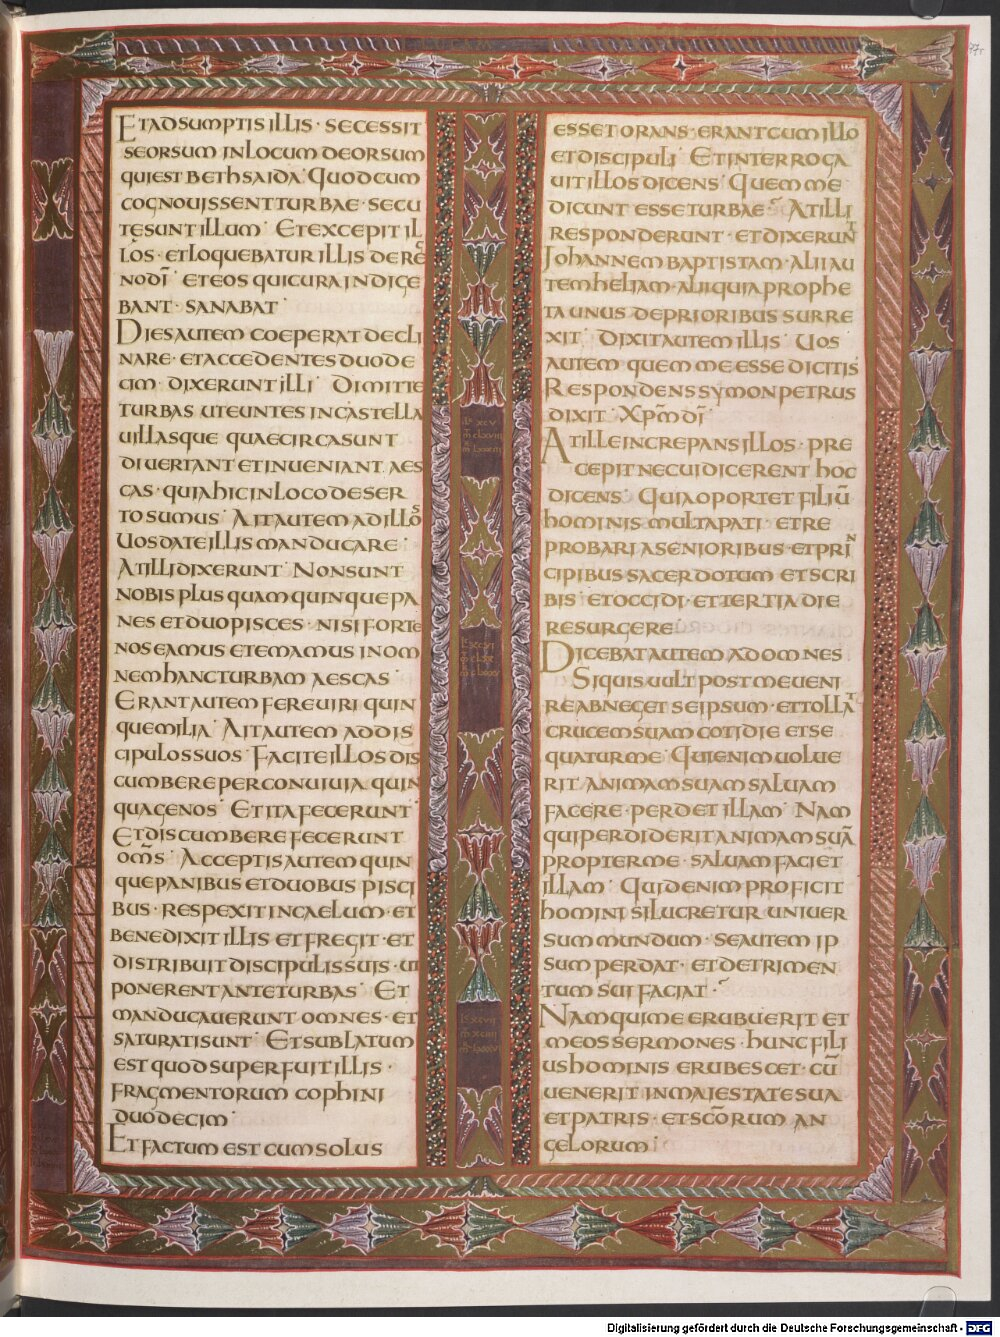 ET ADSUMPTIS ILLIS · SECESSIT
SEORSUM IN LOCUM DEORSUM
QUI EST BETHSAIDA · QUOD CUM
COGNOUISSENT TURBAE · SECU
TE SUNT ILLUM · ET EXCEPIT IL
LOS · ET LOQUEBATUR ILLIS DE RE
NO DI · ET EOS QUI CURA INDIGE
BANT · SANABAT ·
DIES AUTEM COEPERAT DECLI
NARE · ET ACCEDENTES DUODE
CIM · DIXERUNT ILLI · DIMITTE
TURBAS UT EUNTES IN CASTELLA
UILLASQUE QUAE CIRCA SUNT
DIUERTANT ET INUENIANT AES
CAS · QUIA HIC IN LOCO DESER
TO SUMUS · AIT AUTEM AD ILLOS
UOS DATE ILLIS MANDUCARE ·
AT ILLI DIXERUNT · NON SUNT
NOBIS PLUS QUAM QUINQUE PA
NES ET DUO PISCES · NISI FORTE
NOS EAMUS ET EMAMUS IN OM
NEM HANC TURBAM AESCAS
ERANT AUTEM FERE UIRI QUIN
QUE MILIA · AIT AUTEM AD DIS
CIPULOS SUOS · FACITE ILLOS DIS
CUMBERE PER CONUIUIA QUIN
QUAGENOS · ET ITA FECERUNT ·
ET DISCUMBERE FECERUNT
OMS · ACCEPTIS AUTEM QUIN
QUE PANIBUS ET DUOBUS PISCI
BUS · RESPEXIT IN CAELUM · ET
BENEDIXIT ILLIS ET FREGIT · ET
DISTRIBUIT DISCIPULIS SUIS · UT
PONERENT ANTE TURBAS · ET
MANDUCAUERUNT OMNES · ET
SATURATI SUNT · ET SUBLATUM
EST QUOD SUPERFUIT ILLIS ·
FRAGMENTORUM COPHINI
DUODECIM ·
ET FACTUM EST CUM SOLUS
ESSET ORANS · ERANT CUM ILLO
ET DISCIPULI · ET INTERROGA
UIT ILLOS DICENS · QUEM ME
DICUNT ESSE TURBAE · AT ILLI
RESPONDERUNT · ET DIXERUNT
JOHANNEM BAPTISTAM · ALII AU
TEM HELIAM · ALII QUIA PROPHE
TA UNUS DE PRIORIBUS SURRE
XIT · DIXIT AUTEM ILLIS · UOS
AUTEM QUEM ME ESSE DICITIS
RESPONDENS SYMON PETRUS
DIXIT · XPM DI
AT ILLE INCREPANS ILLOS · PRE
CEPIT NE CUI DICERENT HOC
DICENS · QUIA OPORTET FILIŪ
HOMINIS MULTA PATI · ET RE
PROBARI A SENIORIBUS · ET PRIN
CIPIBUS SACERDOTUM ET SCRI
BIS · ET OCCIDI · ET TERTIA DIE
RESURGERE ·
DICEBAT AUTEM AD OMNES
SI QUIS UULT POST ME UENI
RE ABNEGET SE IPSUM · ET TOLLAT
CRUCEM SUAM COTIDIE ET SE
QUATUR ME · QUI ENIM UOLUE
RIT ANIMAM SUAM SALUAM
FACERE · PERDET ILLAM · NAM
QUI PERDIDERIT ANIMAM SUĀ
PROPTER ME · SALUAM FACIET
ILLAM · QUID ENIM PROFICIT
HOMINI SI LUCRETUR UNIUER
SUM MUNDUM · SE AUTEM IP
SUM PERDAT · ET DETRIMEN
TUM SUI FACIAT ·
NAM QUI ME ERUBUERIT ET
MEOS SERMONES · HUNC FILI
US HOMINIS ERUBESCET · CŪ
UENERIT IN MAIESTATE SUA
ET PATRIS · ET SCŌRUM AN
GELORUM
Digitalisierung gefördert durch die Deutsche Forschungsgemeinschaft - DFG